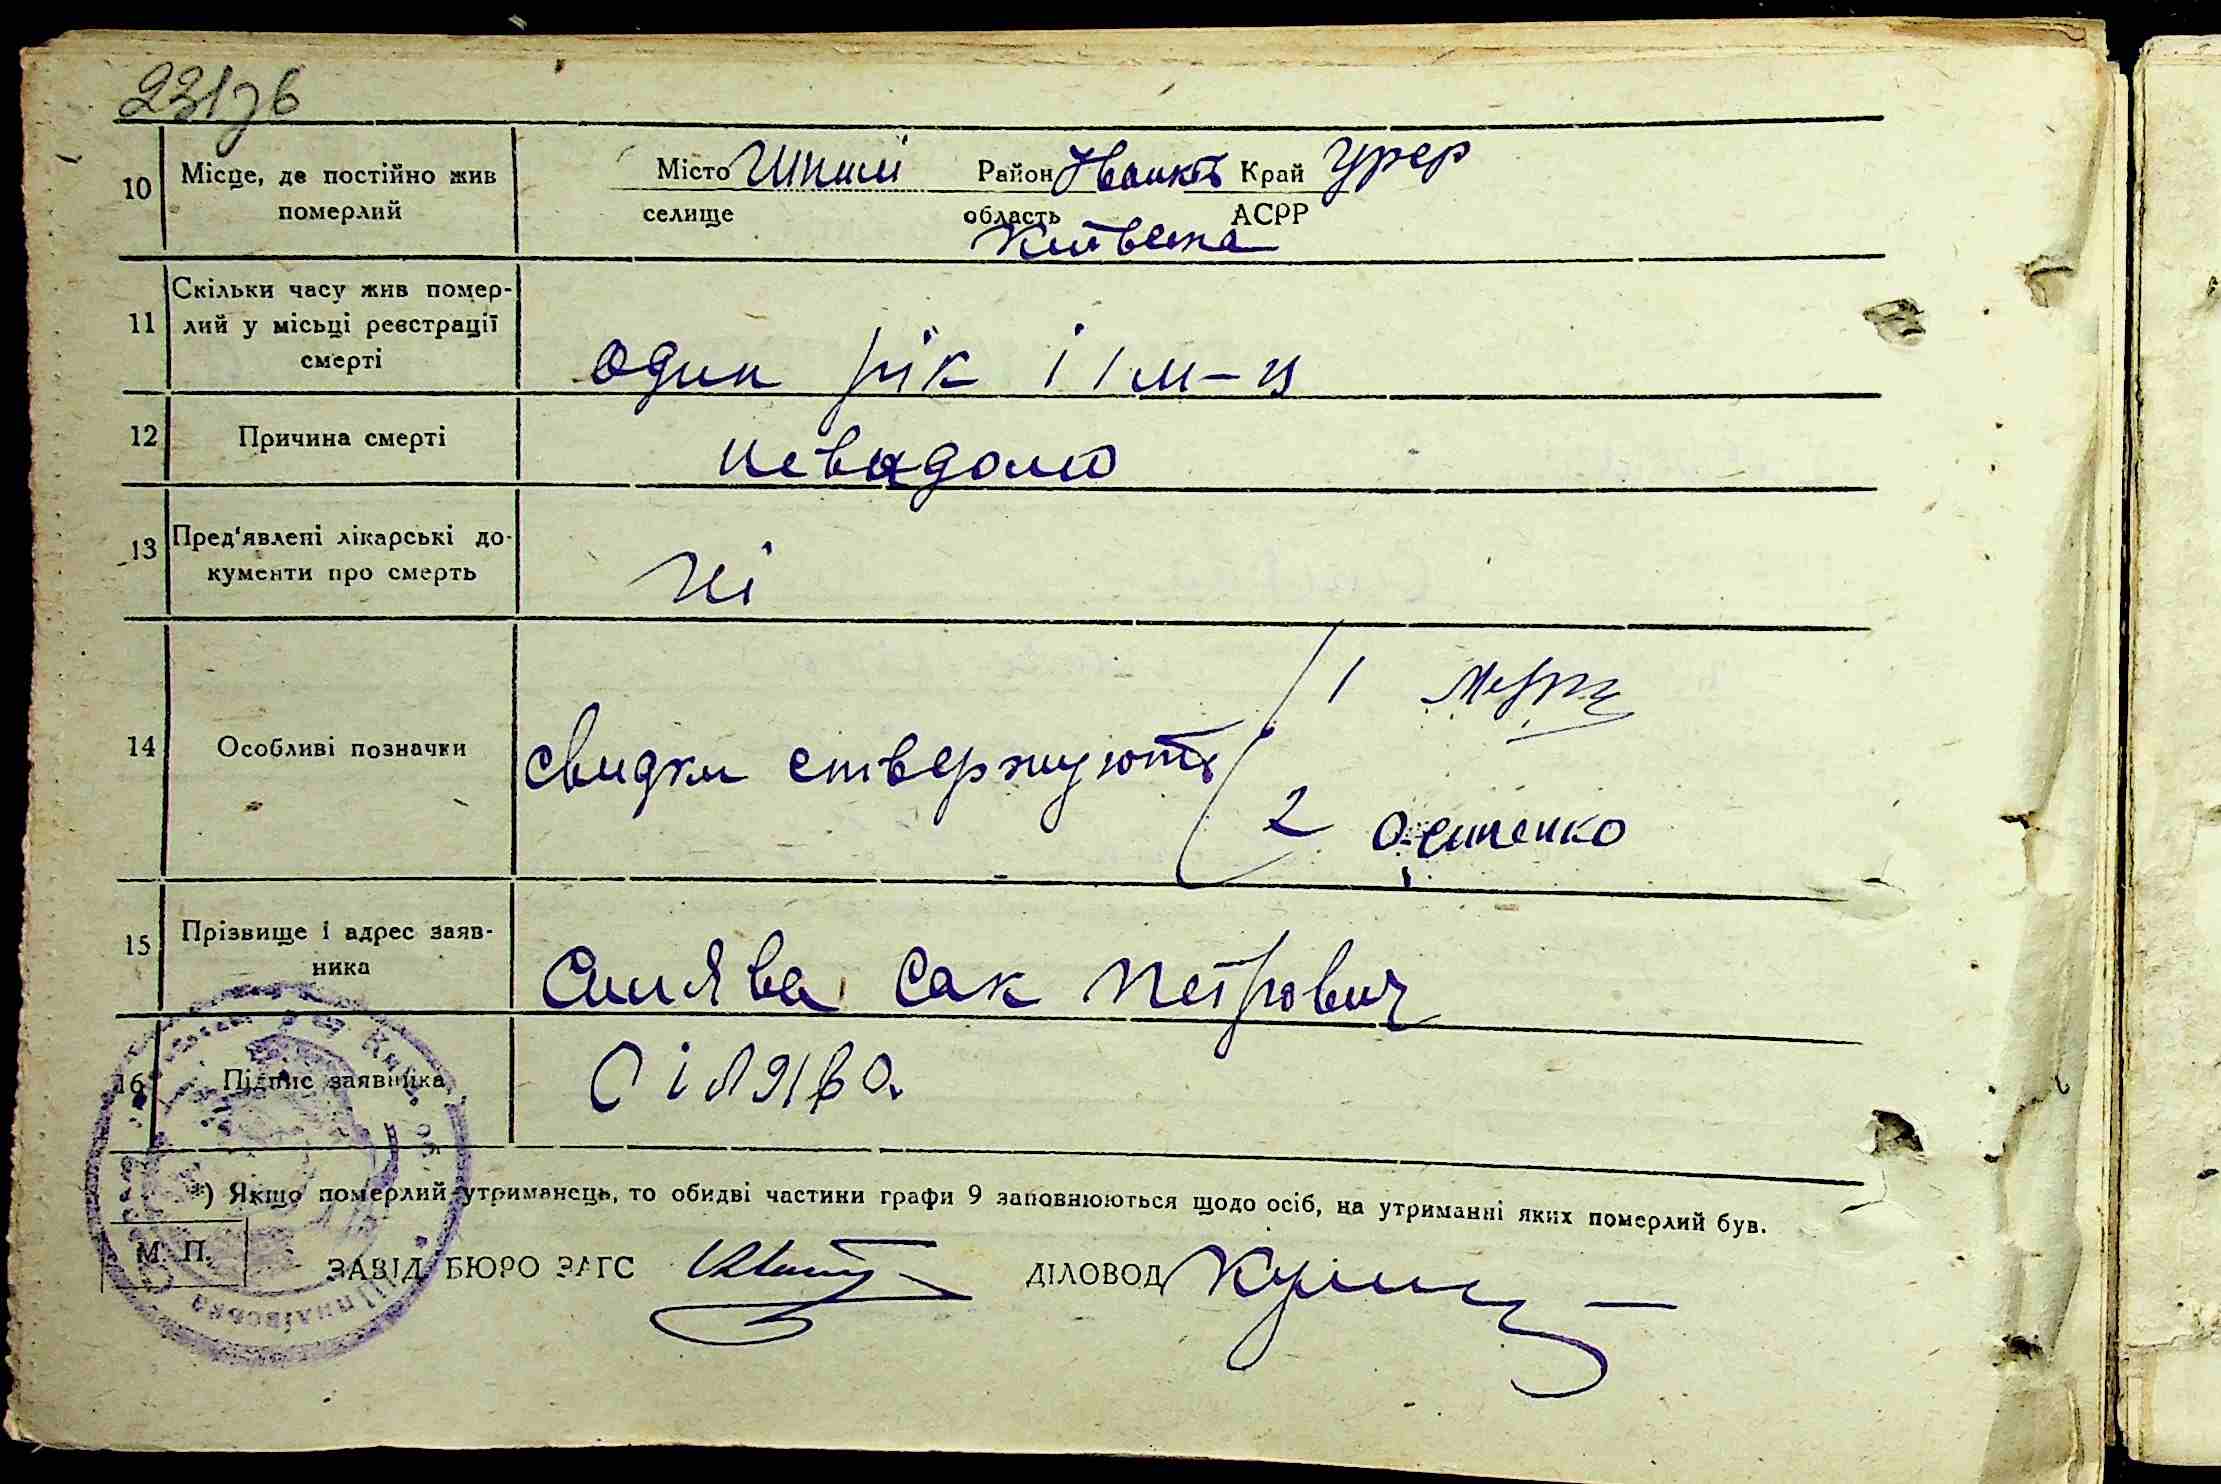 10 Місце, де постійно жив Місто Шпилі Район Іванків Край УРСР
померлий селище область АСРР
Київська
11 Скільки часу жив помер-
лий у місьці реєстрації
смерті один рік і 1 м-ц
12 Причина смерті невидомо
13 Пред'явлені лікарські до-
кументи про смерть ні
1
14 Особливі позначки свидки ствержують
2 Осипенко
15 Прізвище і адрес заяв-
ника Силява Сак Петрович
16 Підпис заявника Сілява
*) Якщо померлий утриманець, то обидві частини графи 9 заповнюються щодо осіб, на утриманні яких померлий був.
М. П.
ЗАВІД. БЮРО ЗАГС ДІЛОВОД